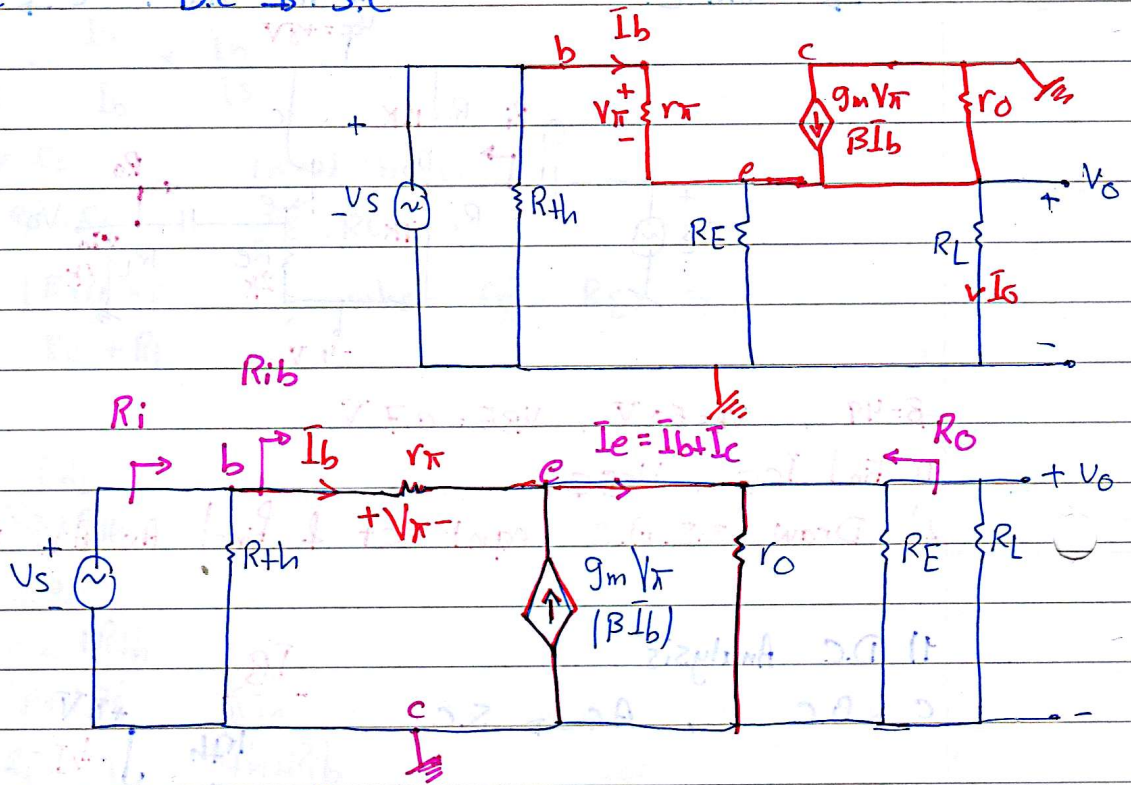 D.C → S.C
b Īb
+ Vπ - rπ
c
gmVπ
βĪb
ro
+ Vs -
Rth
e
RE
RL
Vo + -
Io
Rib
Ri
b Īb rπ
+Vπ-
e
Ie = Īb+Ic
Ro
+ Vo
+ Vs -
Rth
gmVπ
(βĪb)
ro
RE
RL
c
-